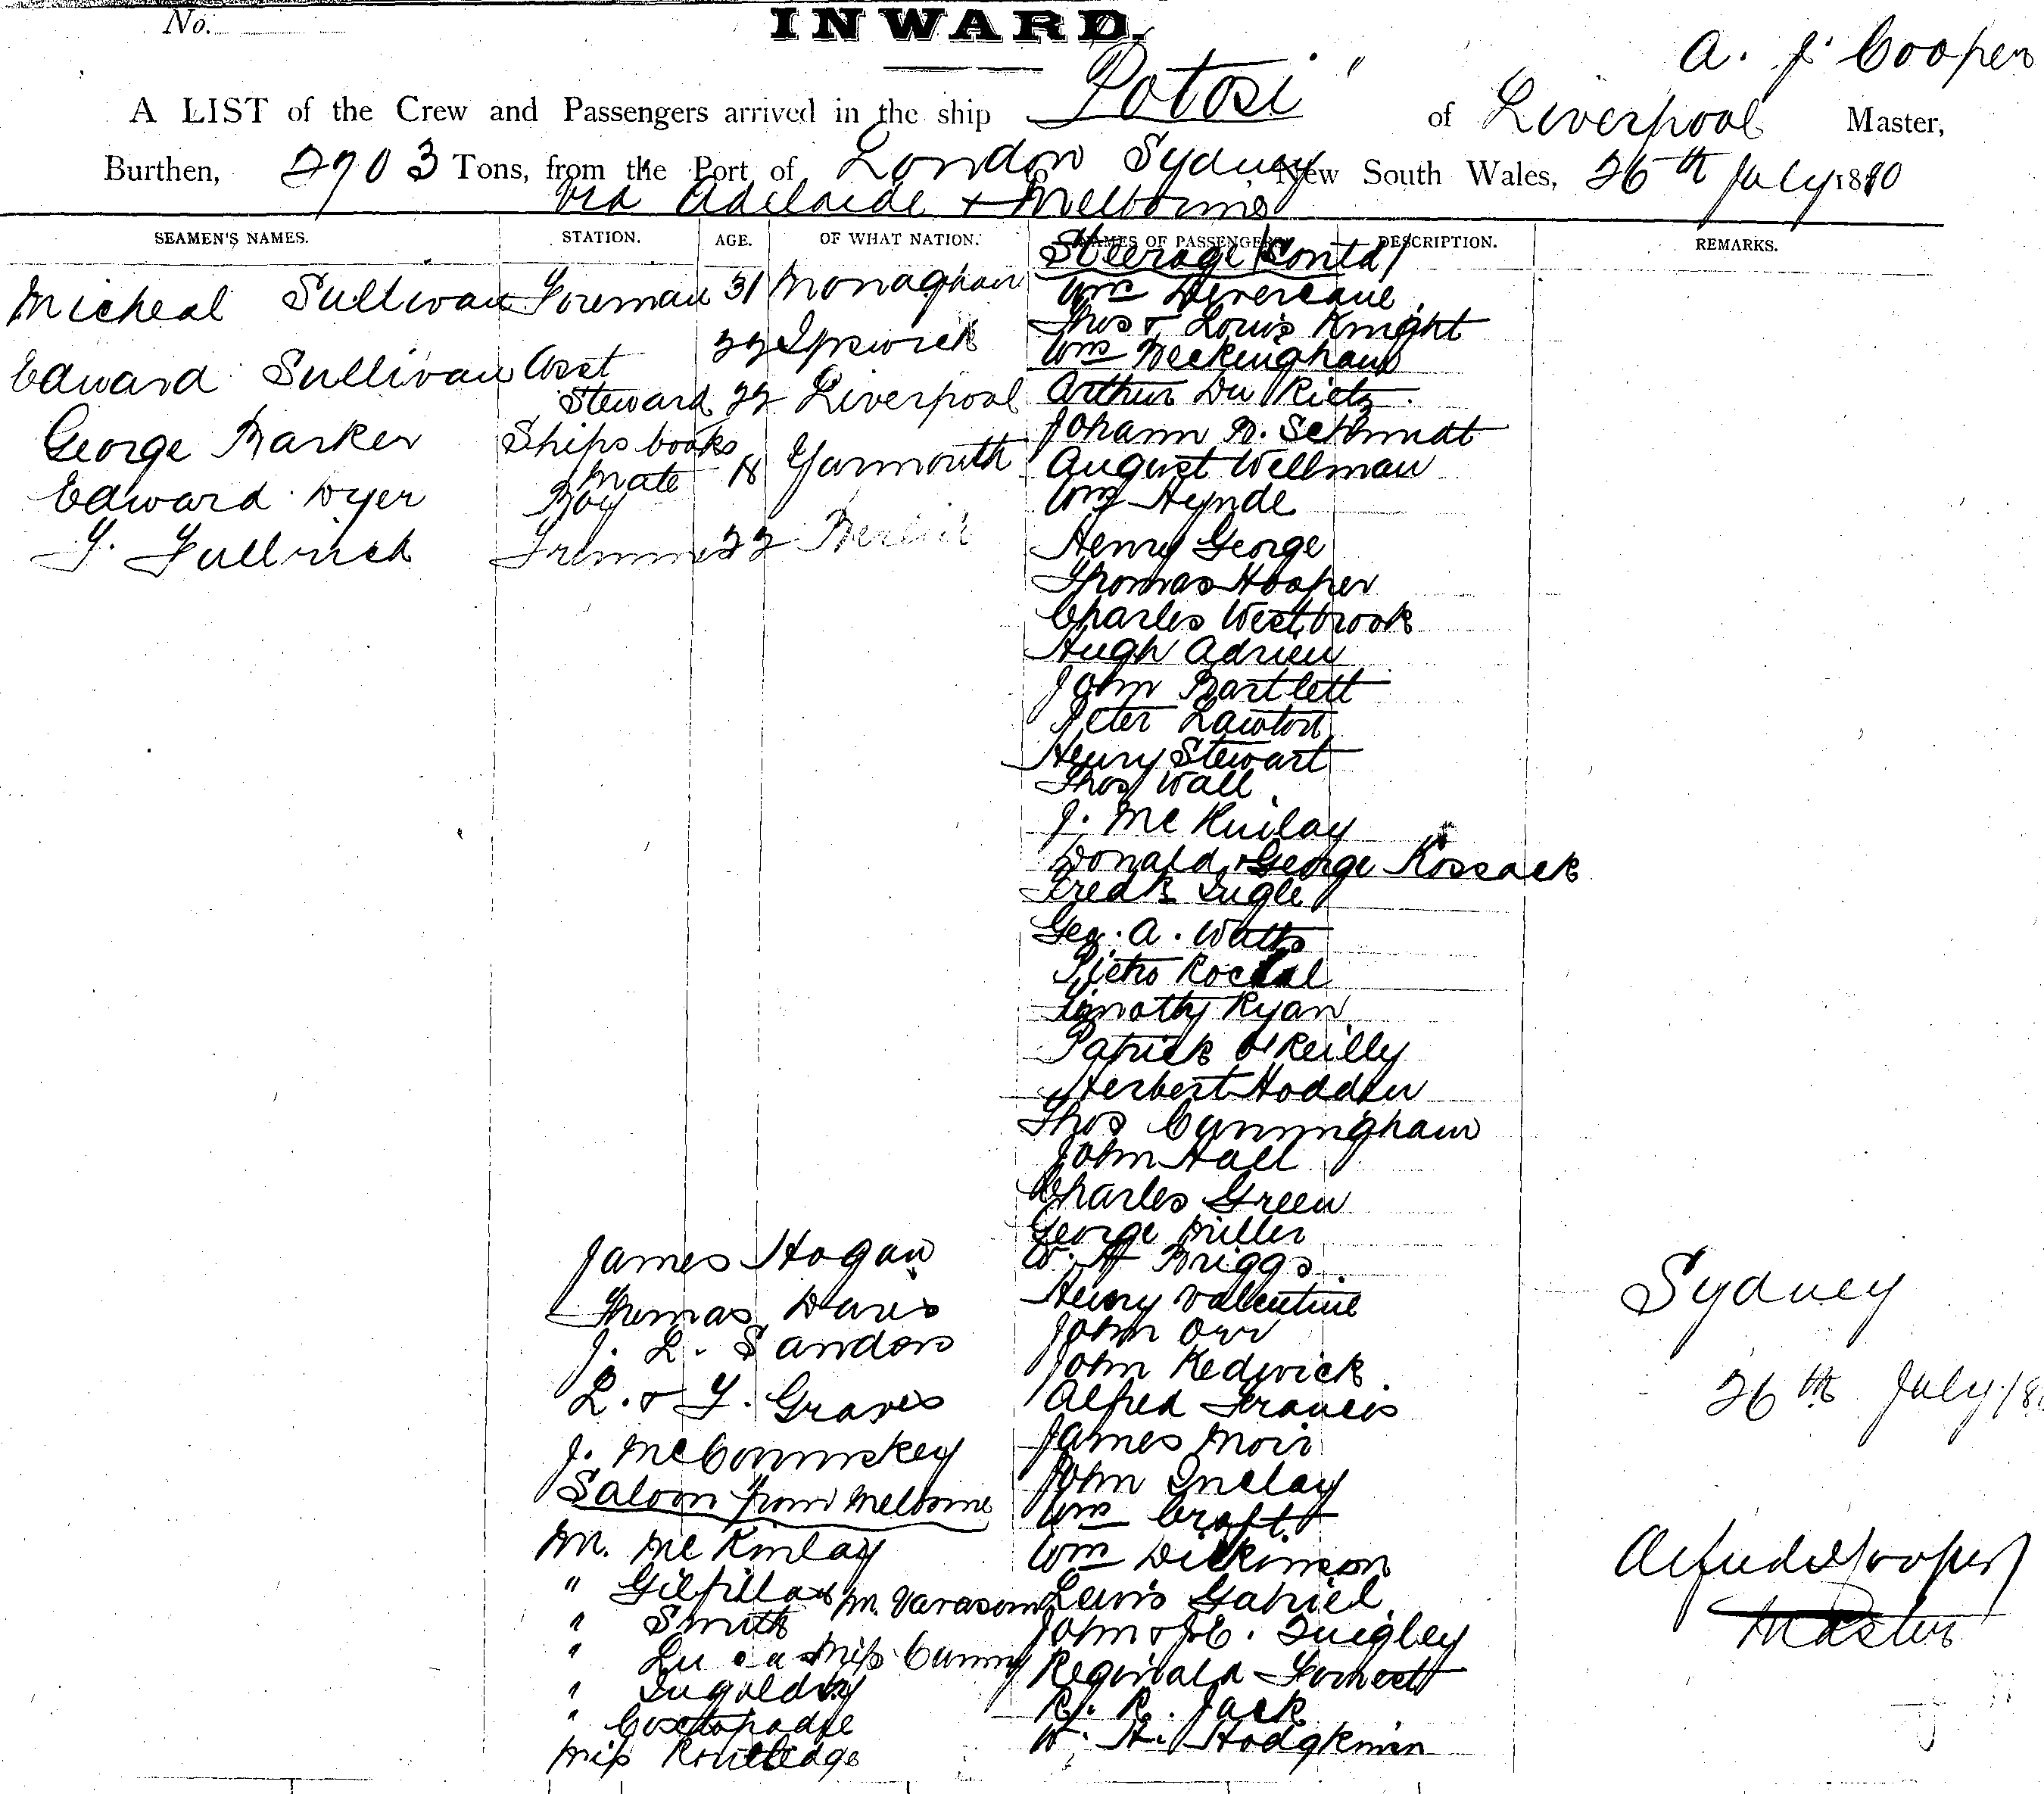 No.
INWARD.
A. J. Cooper
A LIST of the Crew and Passengers arrived in the ship "Potosi" of Liverpool Master,
Burthen, 2703 Tons, from the Port of London to Sydney, New South Wales, 26th July 1880
via Adelaide & Melbourne
SEAMEN'S NAMES. STATION. AGE. OF WHAT NATION. NAMES OF PASSENGERS. DESCRIPTION. REMARKS.
Micheal Sullivan Foreman 31 Monaghan
Edward Sullivan Asst Steward 22 Ipswich
George Barker Ships cooks mate 22 Liverpool
Edward Dyer Boy 18 Yarmouth
F. Fullrich Trimmer 22 Berlin
Steerage (Contd)
Wm Devereaue
Thos & Louis Knight
Wm Beckingham
Arthur Du Rietz
Johann B. Schmidt
August Wellman
Wm Hynde
Henry George
Thomas Hooper
Charles Westbrook
Hugh Adrien
John Bartlett
Peter Lawton
Henry Stewart
Thos Wall
J. McKinlay
Donald & George Kossack
Fredk Ingle
Geo. A. Watts
Pietro
Timothy Ryan
Patrick O'Reilly
Herbert Hodden
Thos Cunningham
John Hall
Charles Green
George Miller
W. H. Briggs
Henry Valentine
John Orr
John Kedwick
Alfred Francis
James Moir
John Inclay
Wm Craft
Wm Dickinson
Lewis Gabriel
John & E. Quigley
Reginald
R. R. Jack
W. H. Hodgkinson
James Hogan
Thomas Davis
J. L. Sanders
L. & F. Graves
J. McCommskey
Saloon from Melborne
Mr. McKinlay
" Gilfillan Mr.
" Smith
" Miss
" Ingoldby
"
Miss Routledge
Sydney
26th July 18
Alfred J Cooper
Master